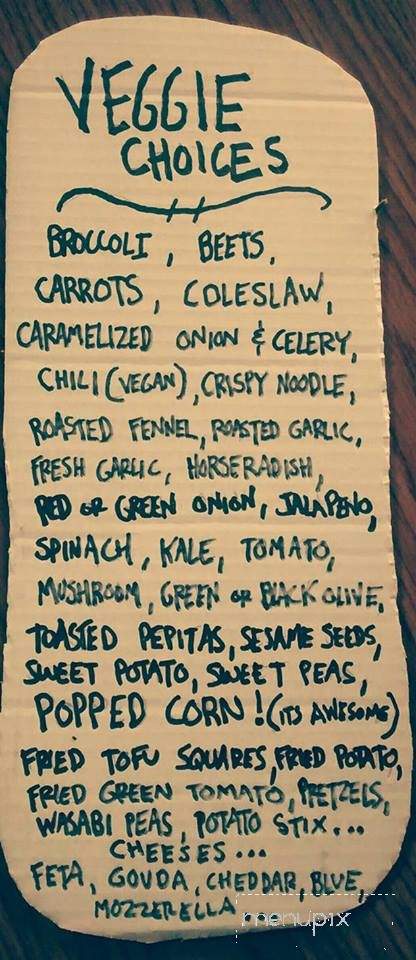 VEGGIE
CHOICES
BROCCOLI, BEETS,
CARROTS, COLESLAW,
CARAMELIZED ONION & CELERY,
CHILI (VEGAN), CRISPY NOODLE,
ROASTED FENNEL, ROASTED GARLIC,
FRESH GARLIC, HORSERADISH,
RED OR GREEN ONION, JALAPENO,
SPINACH, KALE, TOMATO,
MUSHROOM, GREEN OR BLACK OLIVE,
TOASTED PEPITAS, SESAME SEEDS,
SWEET POTATO, SWEET PEAS,
POPPED CORN! (ITS AWESOME)
FRIED TOFU SQUARES, FRIED POTATO,
FRIED GREEN TOMATO, PRETZELS,
WASABI PEAS, POTATO STIX...
CHEESES...
FETA, GOUDA, CHEDDAR, BLUE,
MOZZERELLA
menupix